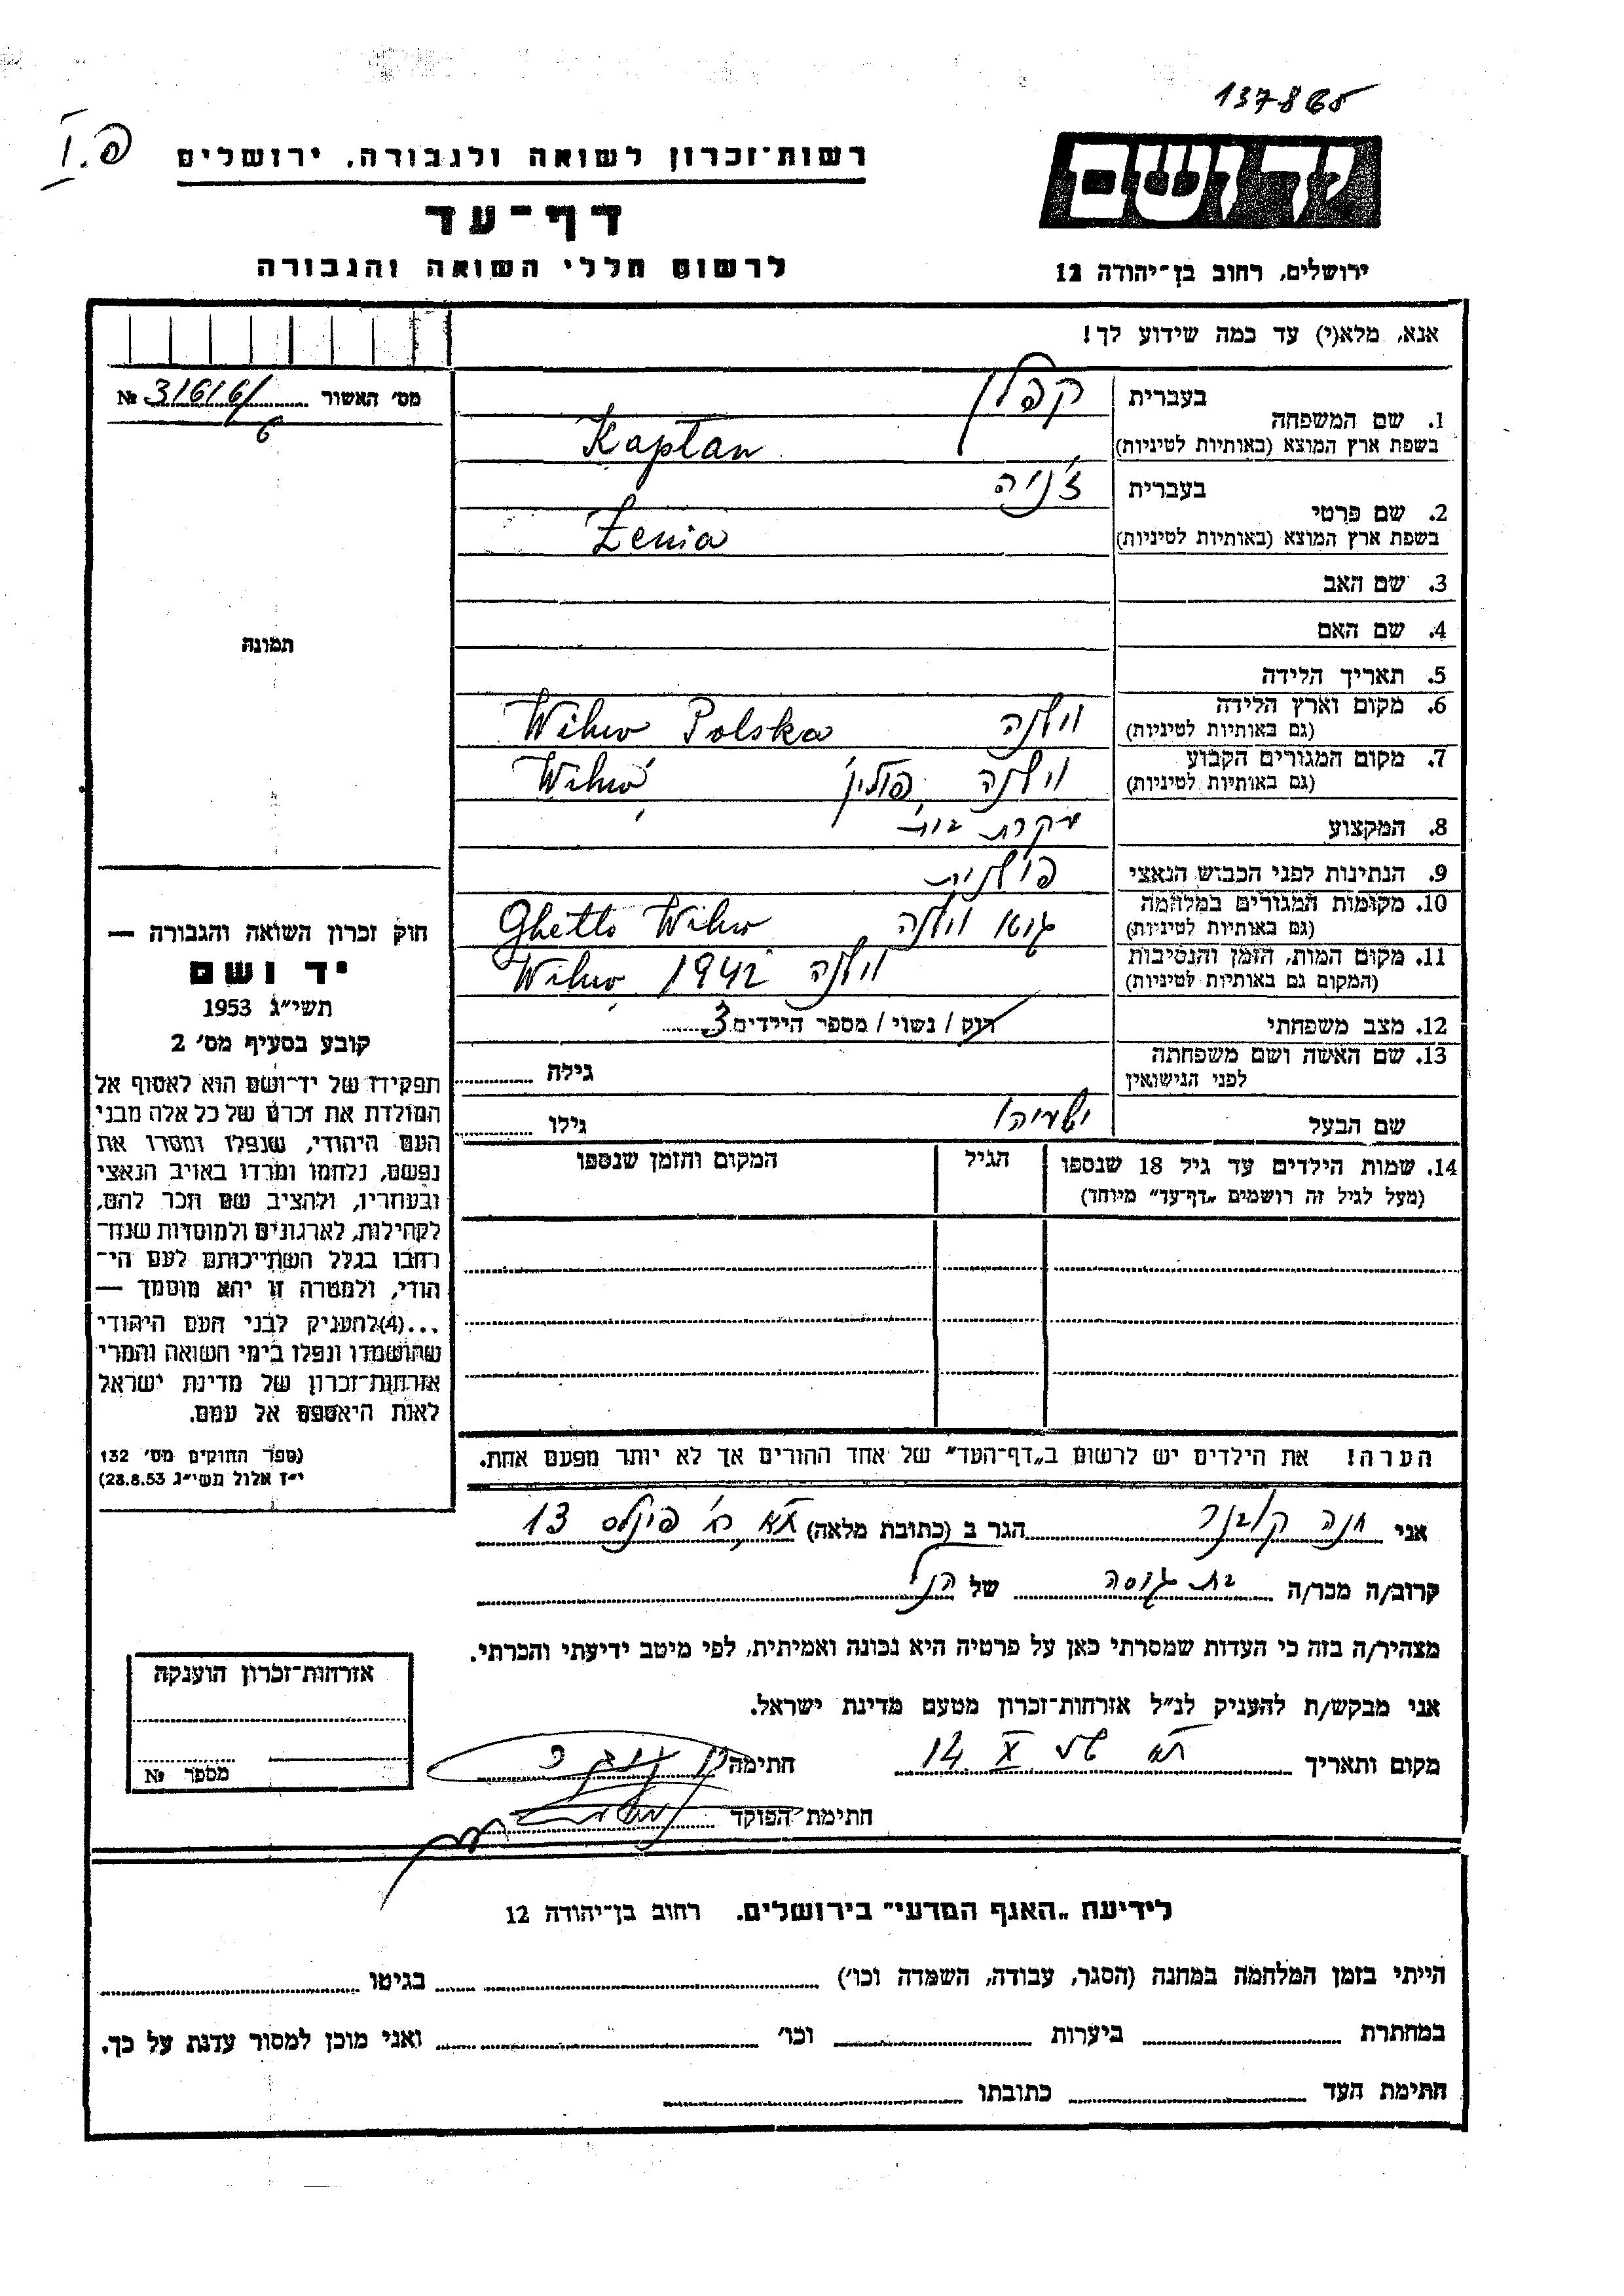 137865
פ.I
יד ושם
רשות־זכרון לשואה ולגבורה, ירושלים
דף־עד
לרשום חללי השואה והגבורה
ירושלים, רחוב בן־יהודה 12
אנא, מלא(י) עד כמה שידוע לך!
מס׳ האשור № 31616/6
1. שם המשפחה
בעברית קפלן
בשפת ארץ המוצא (באותיות לטיניות) Kapłan
2. שם פרטי
בעברית ז׳ניה
בשפת ארץ המוצא (באותיות לטיניות) Żenia
3. שם האב
4. שם האם
5. תאריך הלידה
6. מקום וארץ הלידה
(גם באותיות לטיניות) וילנה Wilno Polska
7. מקום המגורים הקבוע
(גם באותיות לטיניות) וילנה פולין Wilno
8. המקצוע עקרת בית
9. הנתינות לפני הכבוש הנאצי פולנית
10. מקומות המגורים במלחמה
(גם באותיות לטיניות) גטו וילנה Ghetto Wilno
11. מקום המות, הזמן והנסיבות
(המקום גם באותיות לטיניות) וילנה 1942 Wilno
12. מצב משפחתי רוק / נשוי / מספר הילדים 3
13. שם האשה ושם משפחתה
לפני הנישואין גילה
שם הבעל ישעיהו גילו
14. שמות הילדים עד גיל 18 שנספו
(מעל לגיל זה רושמים „דף־עד” מיוחד)
הגיל
המקום והזמן שנספו
תמונה
חוק זכרון השואה והגבורה —
יד ושם
תשי״ג 1953
קובע בסעיף מס׳ 2
תפקידו של יד־ושם הוא לאסוף אל
המולדת את זכרם של כל אלה מבני
העם היהודי, שנפלו ומסרו את
נפשם, נלחמו ומרדו באויב הנאצי
ובעוזריו, ולהציב שם וזכר להם,
לקהילות, לארגונים ולמוסדות שנח־
רבו בגלל השתייכותם לעם הי־
הודי, ולמטרה זו יהא מוסמך —
...(4)להעניק לבני העם היהודי
שהושמדו ונפלו בימי השואה והמרי
אזרחות־זכרון של מדינת ישראל
לאות היאספם אל עמם.
(ספר החוקים מס׳ 132
י״ז אלול תשי״ג 28.8.53)
הערה! את הילדים יש לרשום ב„דף־העד” של אחד ההורים אך לא יותר מפעם אחת.
אני חנה קובנר הגר ב (כתובת מלאה) ת״א רח׳ פינלס 13
קרוב/ה מכר/ה בת גיסה של הנ״ל
מצהיר/ה בזה כי העדות שמסרתי כאן על פרטיה היא נכונה ואמיתית, לפי מיטב ידיעתי והכרתי.
אני מבקש/ת להעניק לנ״ל אזרחות־זכרון מטעם מדינת ישראל.
מקום ותאריך ת״א 14 X חתימה
חתימת הפוקד
אזרחות־זכרון הוענקה
מספר №
לידיעת „האגף המדעי” בירושלים. רחוב בן־יהודה 12
הייתי בזמן המלחמה במחנה (הסגר, עבודה, השמדה וכו׳) בגיטו
במחתרת ביערות וכו׳ ואני מוכן למסור עדות על כך.
חתימת העד כתובתו